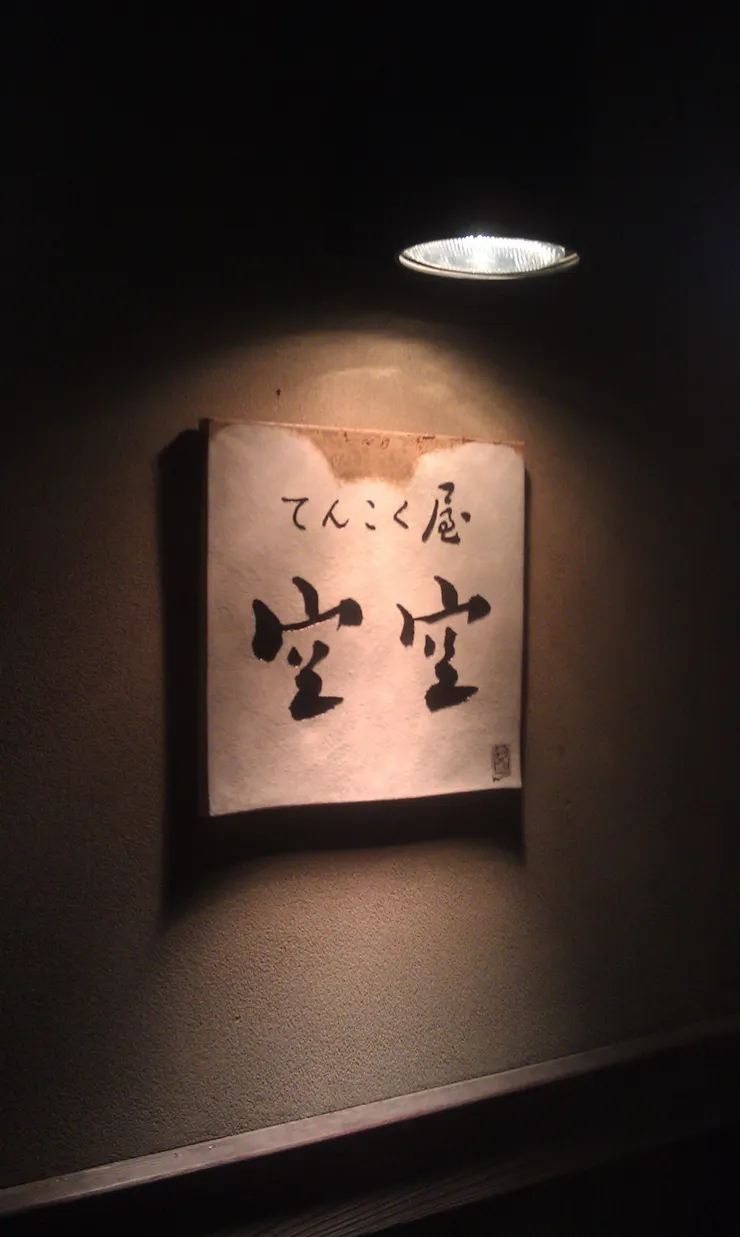 てんこく屋
空空